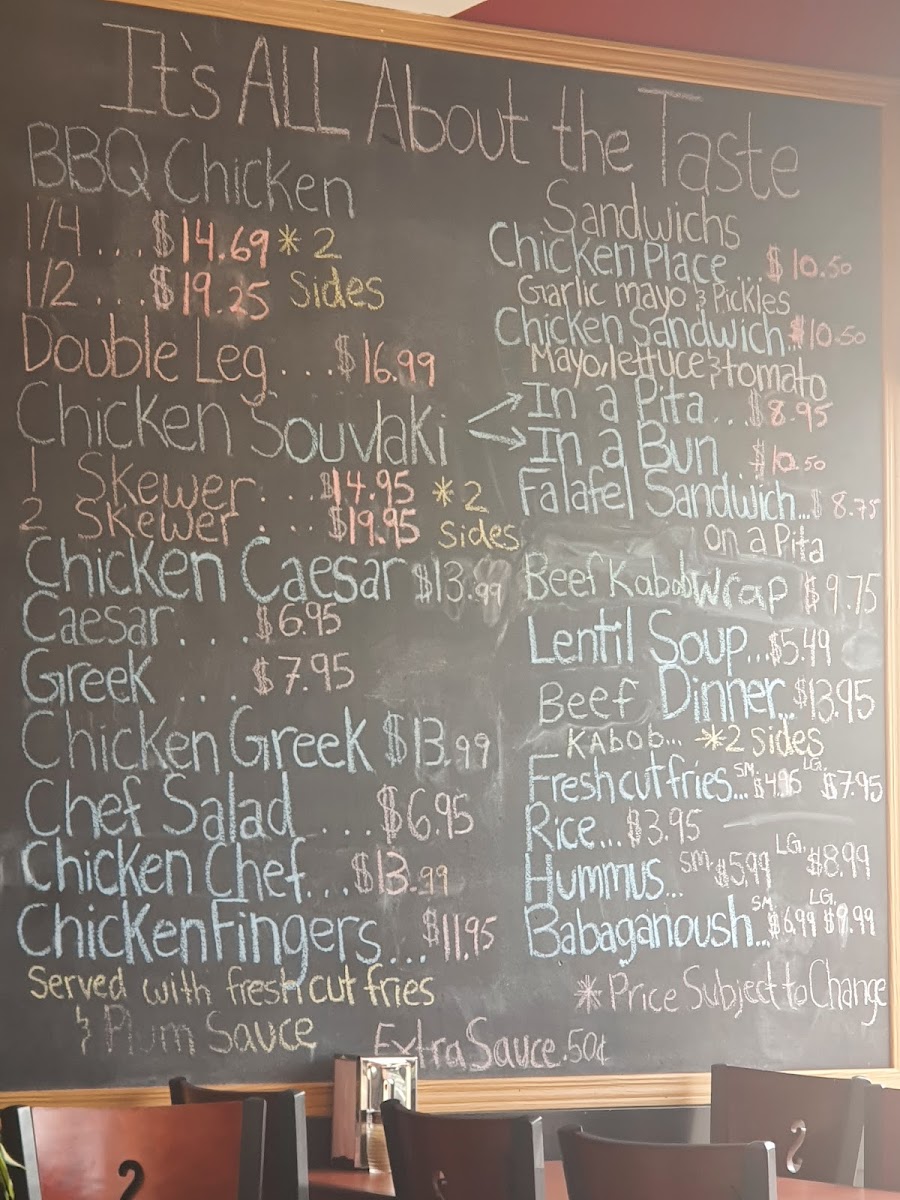 It's ALL About the Taste
BBQ Chicken
1/4 .... $14.69 * 2
1/2 .... $19.25 Sides
Double Leg .... $16.99
Chicken Souvlaki
1 Skewer.... $14.95 * 2
2 Skewer.... $19.95 Sides
Chicken Caesar $13.99
Caesar.... $6.95
Greek .... $7.95
Chicken Greek $13.99
Chef Salad .... $6.95
Chicken Chef.... $13.99
Chicken Fingers... $11.95
Served with fresh cut fries
& Plum Sauce
Extra Sauce .50¢
Sandwichs
Chicken Place ... $10.50
Garlic mayo & Pickles
Chicken Sandwich.. $10.50
Mayo, lettuce & tomato
In a Pita... $8.95
In a Bun $10.50
Falafel Sandwich... $8.75
on a Pita
Beef Kabob Wrap $9.75
Lentil Soup... $5.49
Beef Dinner.. $13.95
KABOB... *2 sides
Fresh cut fries... SM. $4.95 LG. $7.95
Rice... $3.95
Hummus... SM. $5.99 LG. $8.99
Babaganoush... SM. $6.99 LG. $9.99
* Price Subject to Change